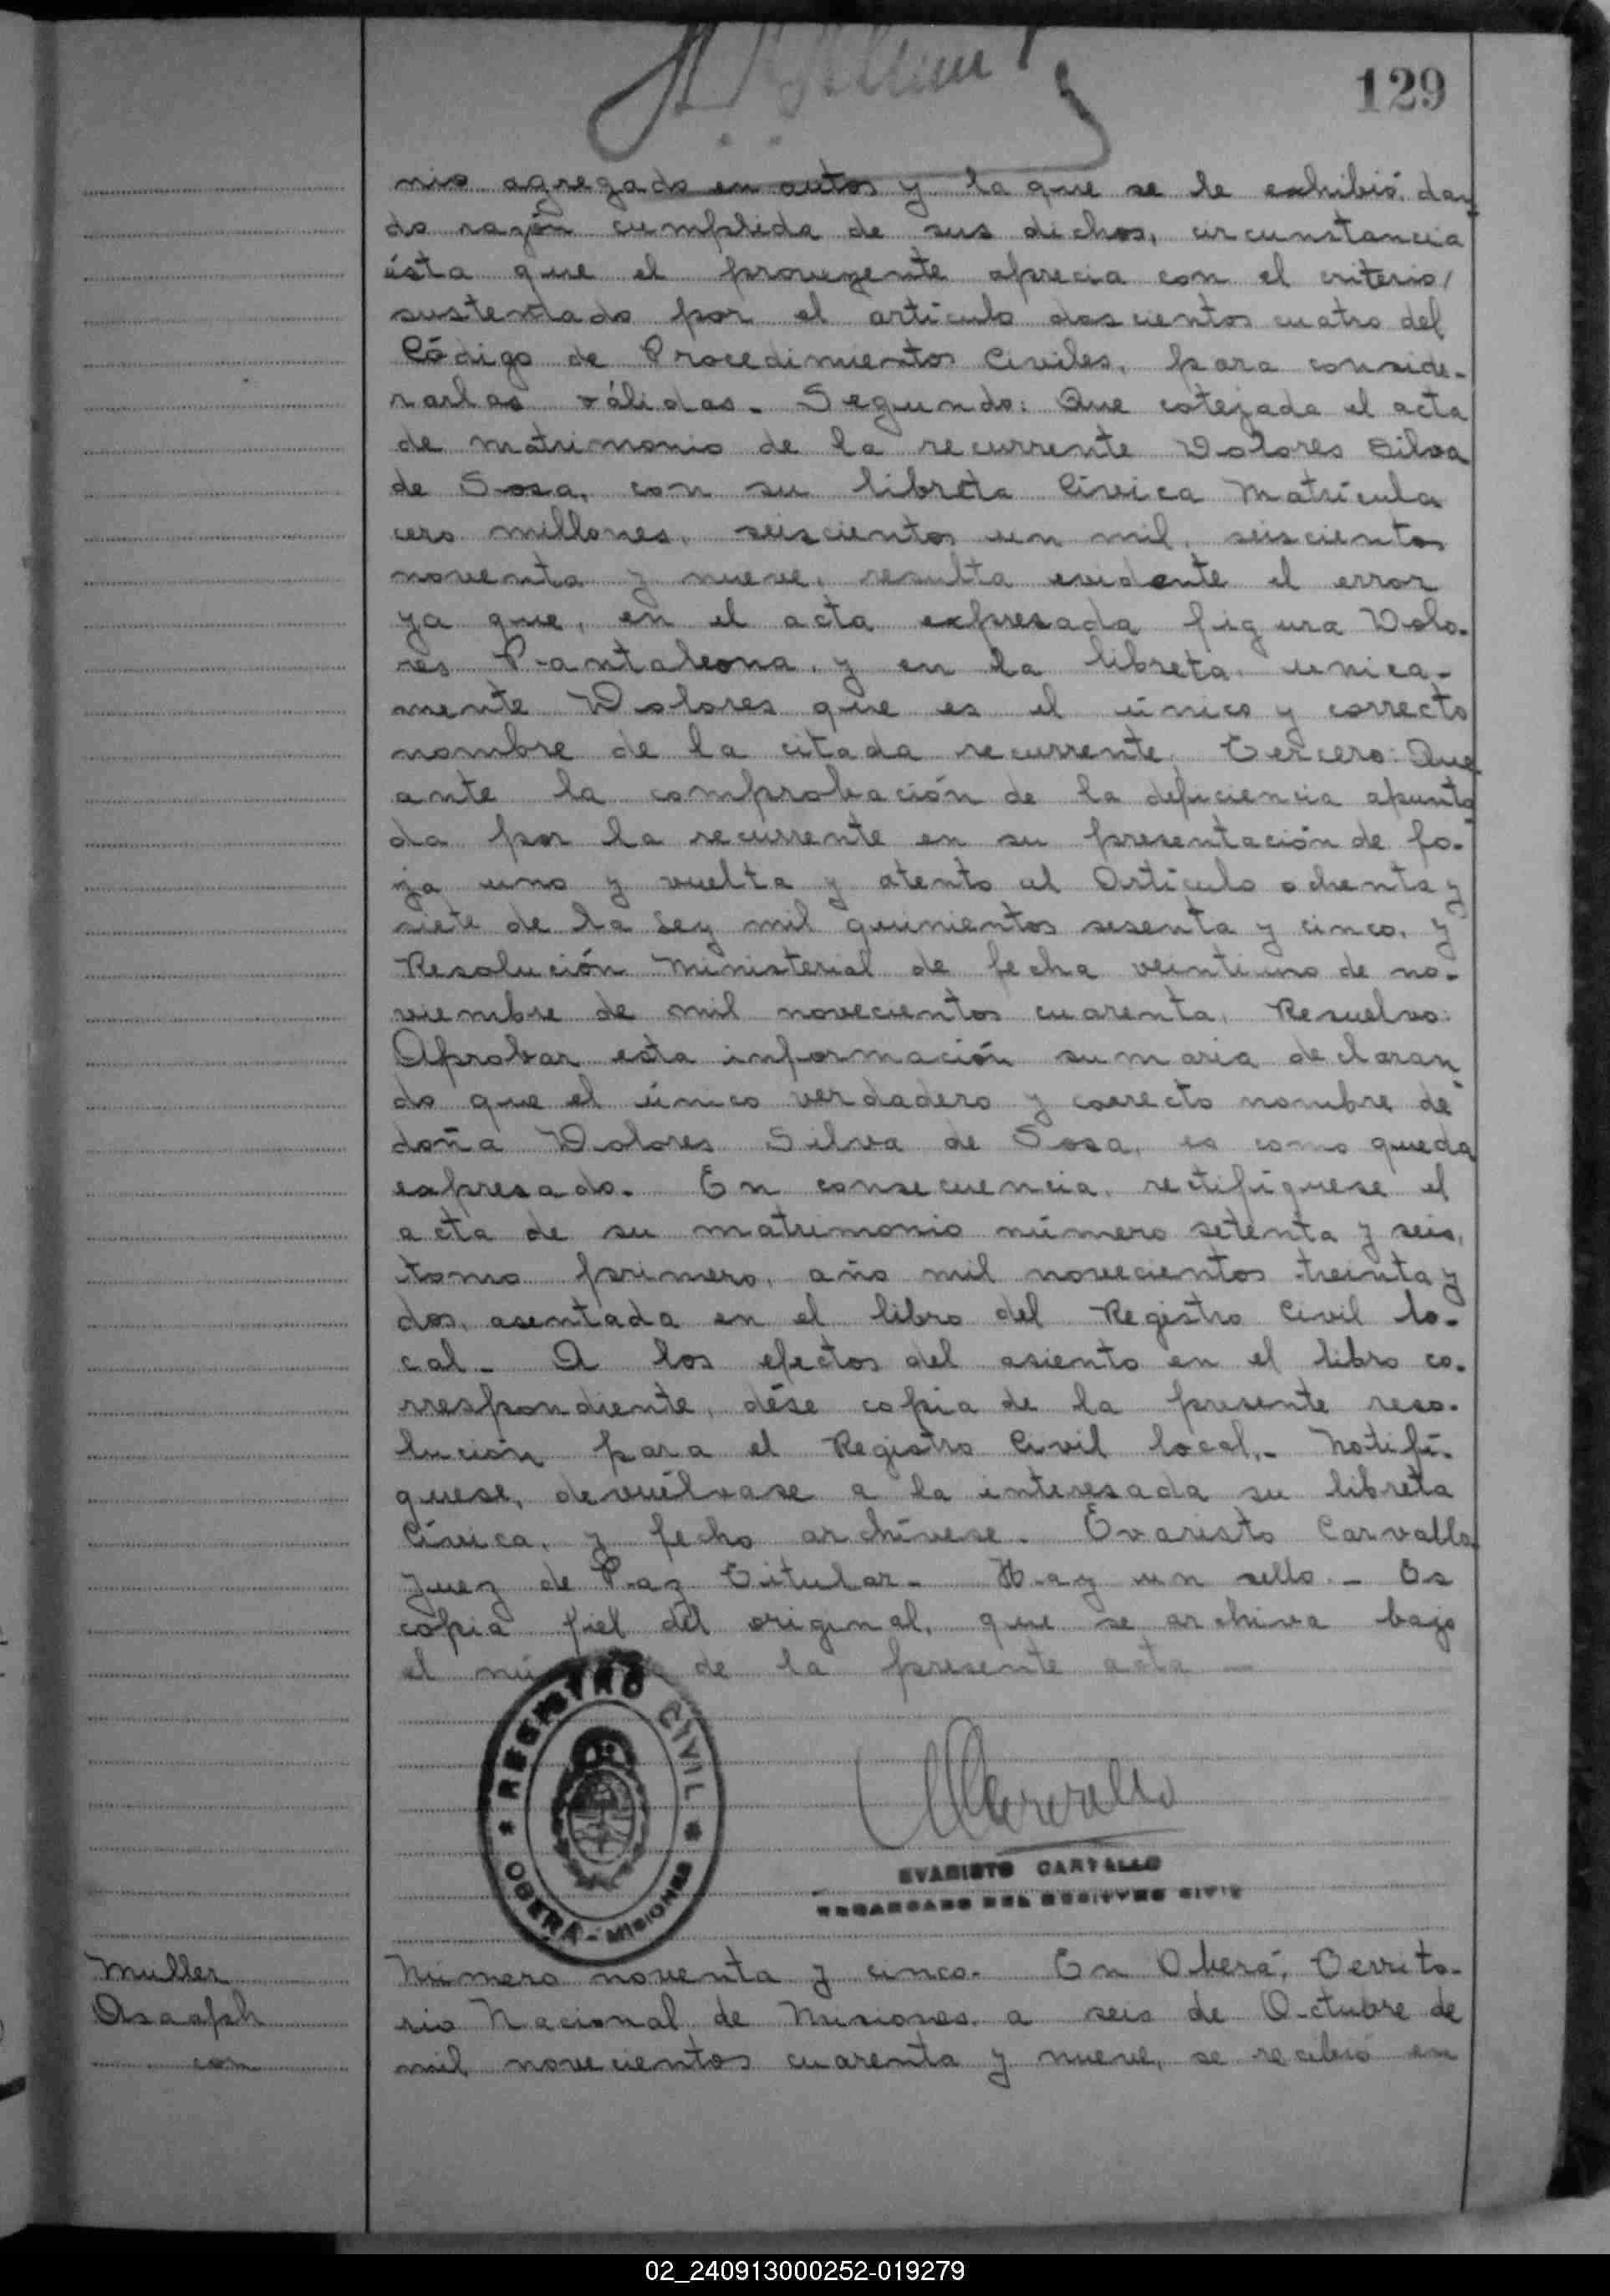 129
nio agregada en autos y la que se le exhibió, dan
do razón cumplida de sus dichos, circunstancia
ésta que el proveyente aprecia con el criterio/
sustentado por el artículo doscientos cuatro del
Código de Procedimientos Civiles, para conside-
rarlas válidas. Segundo: Que cotejada el acta
de matrimonio de la recurrente Dolores Silva
de Sosa, con su libreta Cívica Matrícula
cero millones, seiscientos un mil, seiscientos
noventa y nueve, resulta evidente el error
ya que, en el acta expresada figura Dolo-
res Pantaleona, y en la libreta unica-
mente Dolores que es el único y correcto
nombre de la citada recurrente. Tercero: Que
ante la comprobación de la deficiencia apunta
da por la recurrente en su presentación de fo-
ja uno y vuelta y atento al Artículo ochenta y
siete de la Ley mil quinientos sesenta y cinco, y
Resolución Ministerial de fecha veintiuno de no-
viembre de mil novecientos cuarenta, Resuelvo:
Aprobar esta información sumaria declaran
do que el único verdadero y correcto nombre de
doña Dolores Silva de Sosa, es como queda
expresado. En consecuencia, rectifíquese el
acta de su matrimonio número setenta y seis,
tomo primero, año mil novecientos treinta y
dos, asentada en el libro del Registro Civil lo-
cal. A los efectos del asiento en el libro co-
rrespondiente, dése copia de la presente reso-
lución para el Registro Civil local,. Notifí-
quese, devuélvase a la interesada su libreta
Cívica, y fecho archívese. Evaristo Carvallo
Juez de Paz Titular. Hay un sello. Es
copia fiel del original, que se archiva bajo
el de la presente acta
REGISTRO CIVIL
OBERÁ - MISIONES
EVARISTO CARVALLO
ENCARGADO DEL REGISTRO CIVIL
Muller
Asaaph
com
Número noventa y cinco. En Oberá, Territo-
rio Nacional de Misiones a seis de Octubre de
mil novecientos cuarenta y nueve, se recibió en
02_240913000252-019279